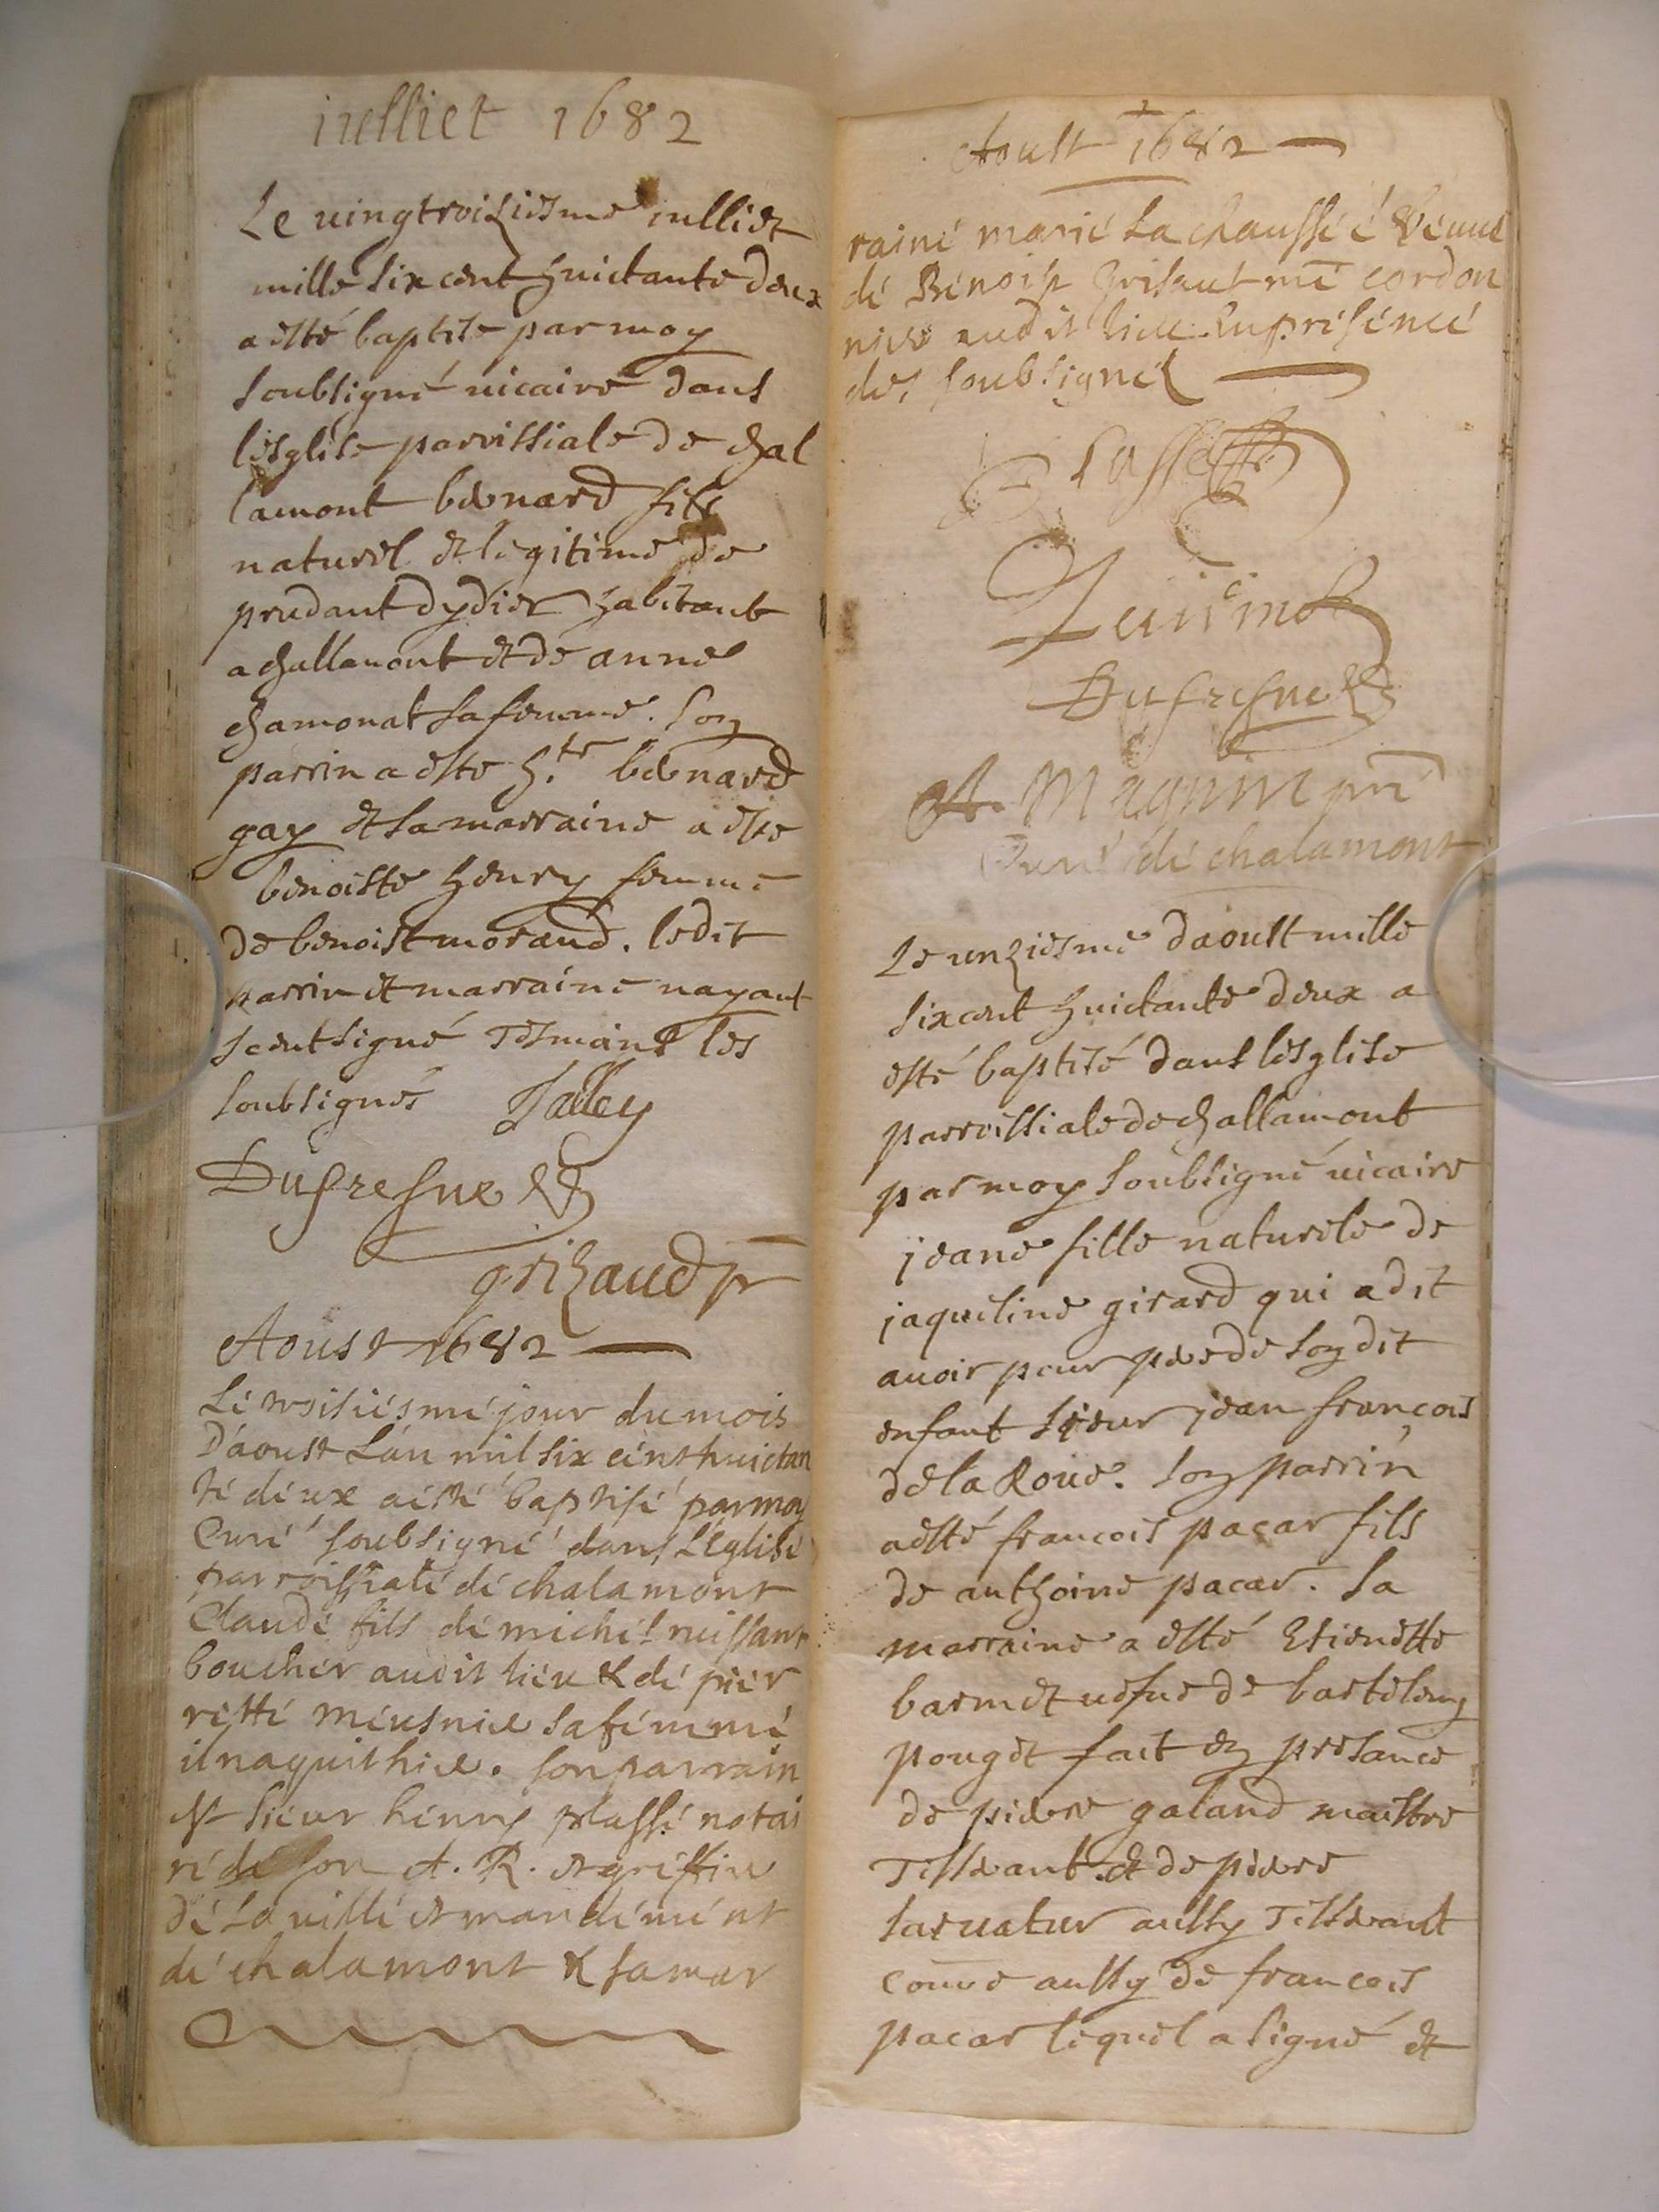 iulliet 1682
Le uingtroiziesme iulliet
mille six cent huictante deux
a esté baptise par moy
soubsigné uicaire dans
lesglise parrissiale de chal
lamont bernard fils
naturel et legitime de
prudant dydier habitant
a challamont et de anne
chamonat sa femme. son
parrin a este h.te bernard
gay et sa marraine a este
benoiste henry femme
de benoist morand. ledit
parrin et marraine nayant
sceut signé tesmains les
soubsignés Jalley
Dufresne
grizaud pr
Aoust 1682
Le troisiesme jour du mois
D'aoust L'an mil six cent huictan
te deux a esté baptisé par moy
Curé soubsigné dans L'Eglise
parroissiale de chalamont
Claude fils de michel nuissant
boucher audit lieu & de pier
rette meusnier sa femme
il naquit hier. son parrain
est sieur henry plassé notai
re de son A. R. et greffier
de la ville et mandement
de chalamont & sa mar
Aoust 1682
raine marie La chaussée veuue
de Benoist Grisaut me cordon
nier audit lieu. En présence
des soubsignez
Plasse
Dufresne
A. Magnin pre
Curé de chalamont
Le unziesme daoust mille
six cent huictante deux a
esté baptisé dans lesglise
parroissiale de challamont
par moy soubsigné uicaire
jeane fille naturele de
jaqueline girard qui a dit
auoir pour pere de son dit
enfant sieur jean françois
de la Roue. son parrin
a esté francois pacar fils
de anthoine pacar. sa
marraine a esté Etienette
barmet uefue de bartelemy
pouget fait en presance
de pierre galand maistre
Tisserant et de pierre
saruatur aussy Tisserant
comme aussy de francois
pacar lequel a signé et